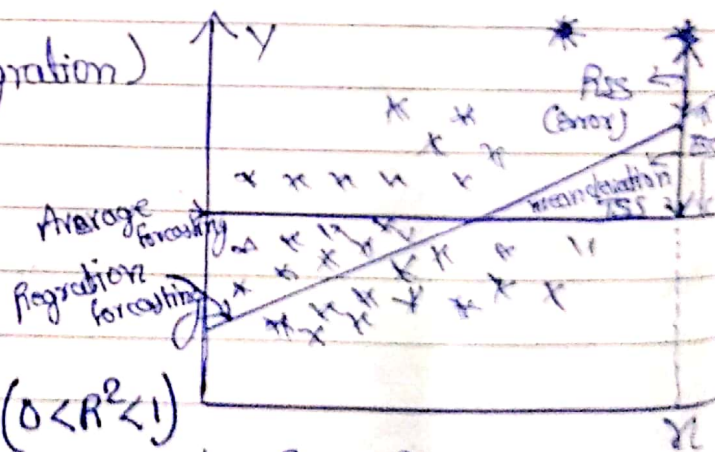 gration)
Y
RSS
(Error)
mean deviation
TSS
Average
forcasting
Regration
forcasting
(0<R²<1)
x